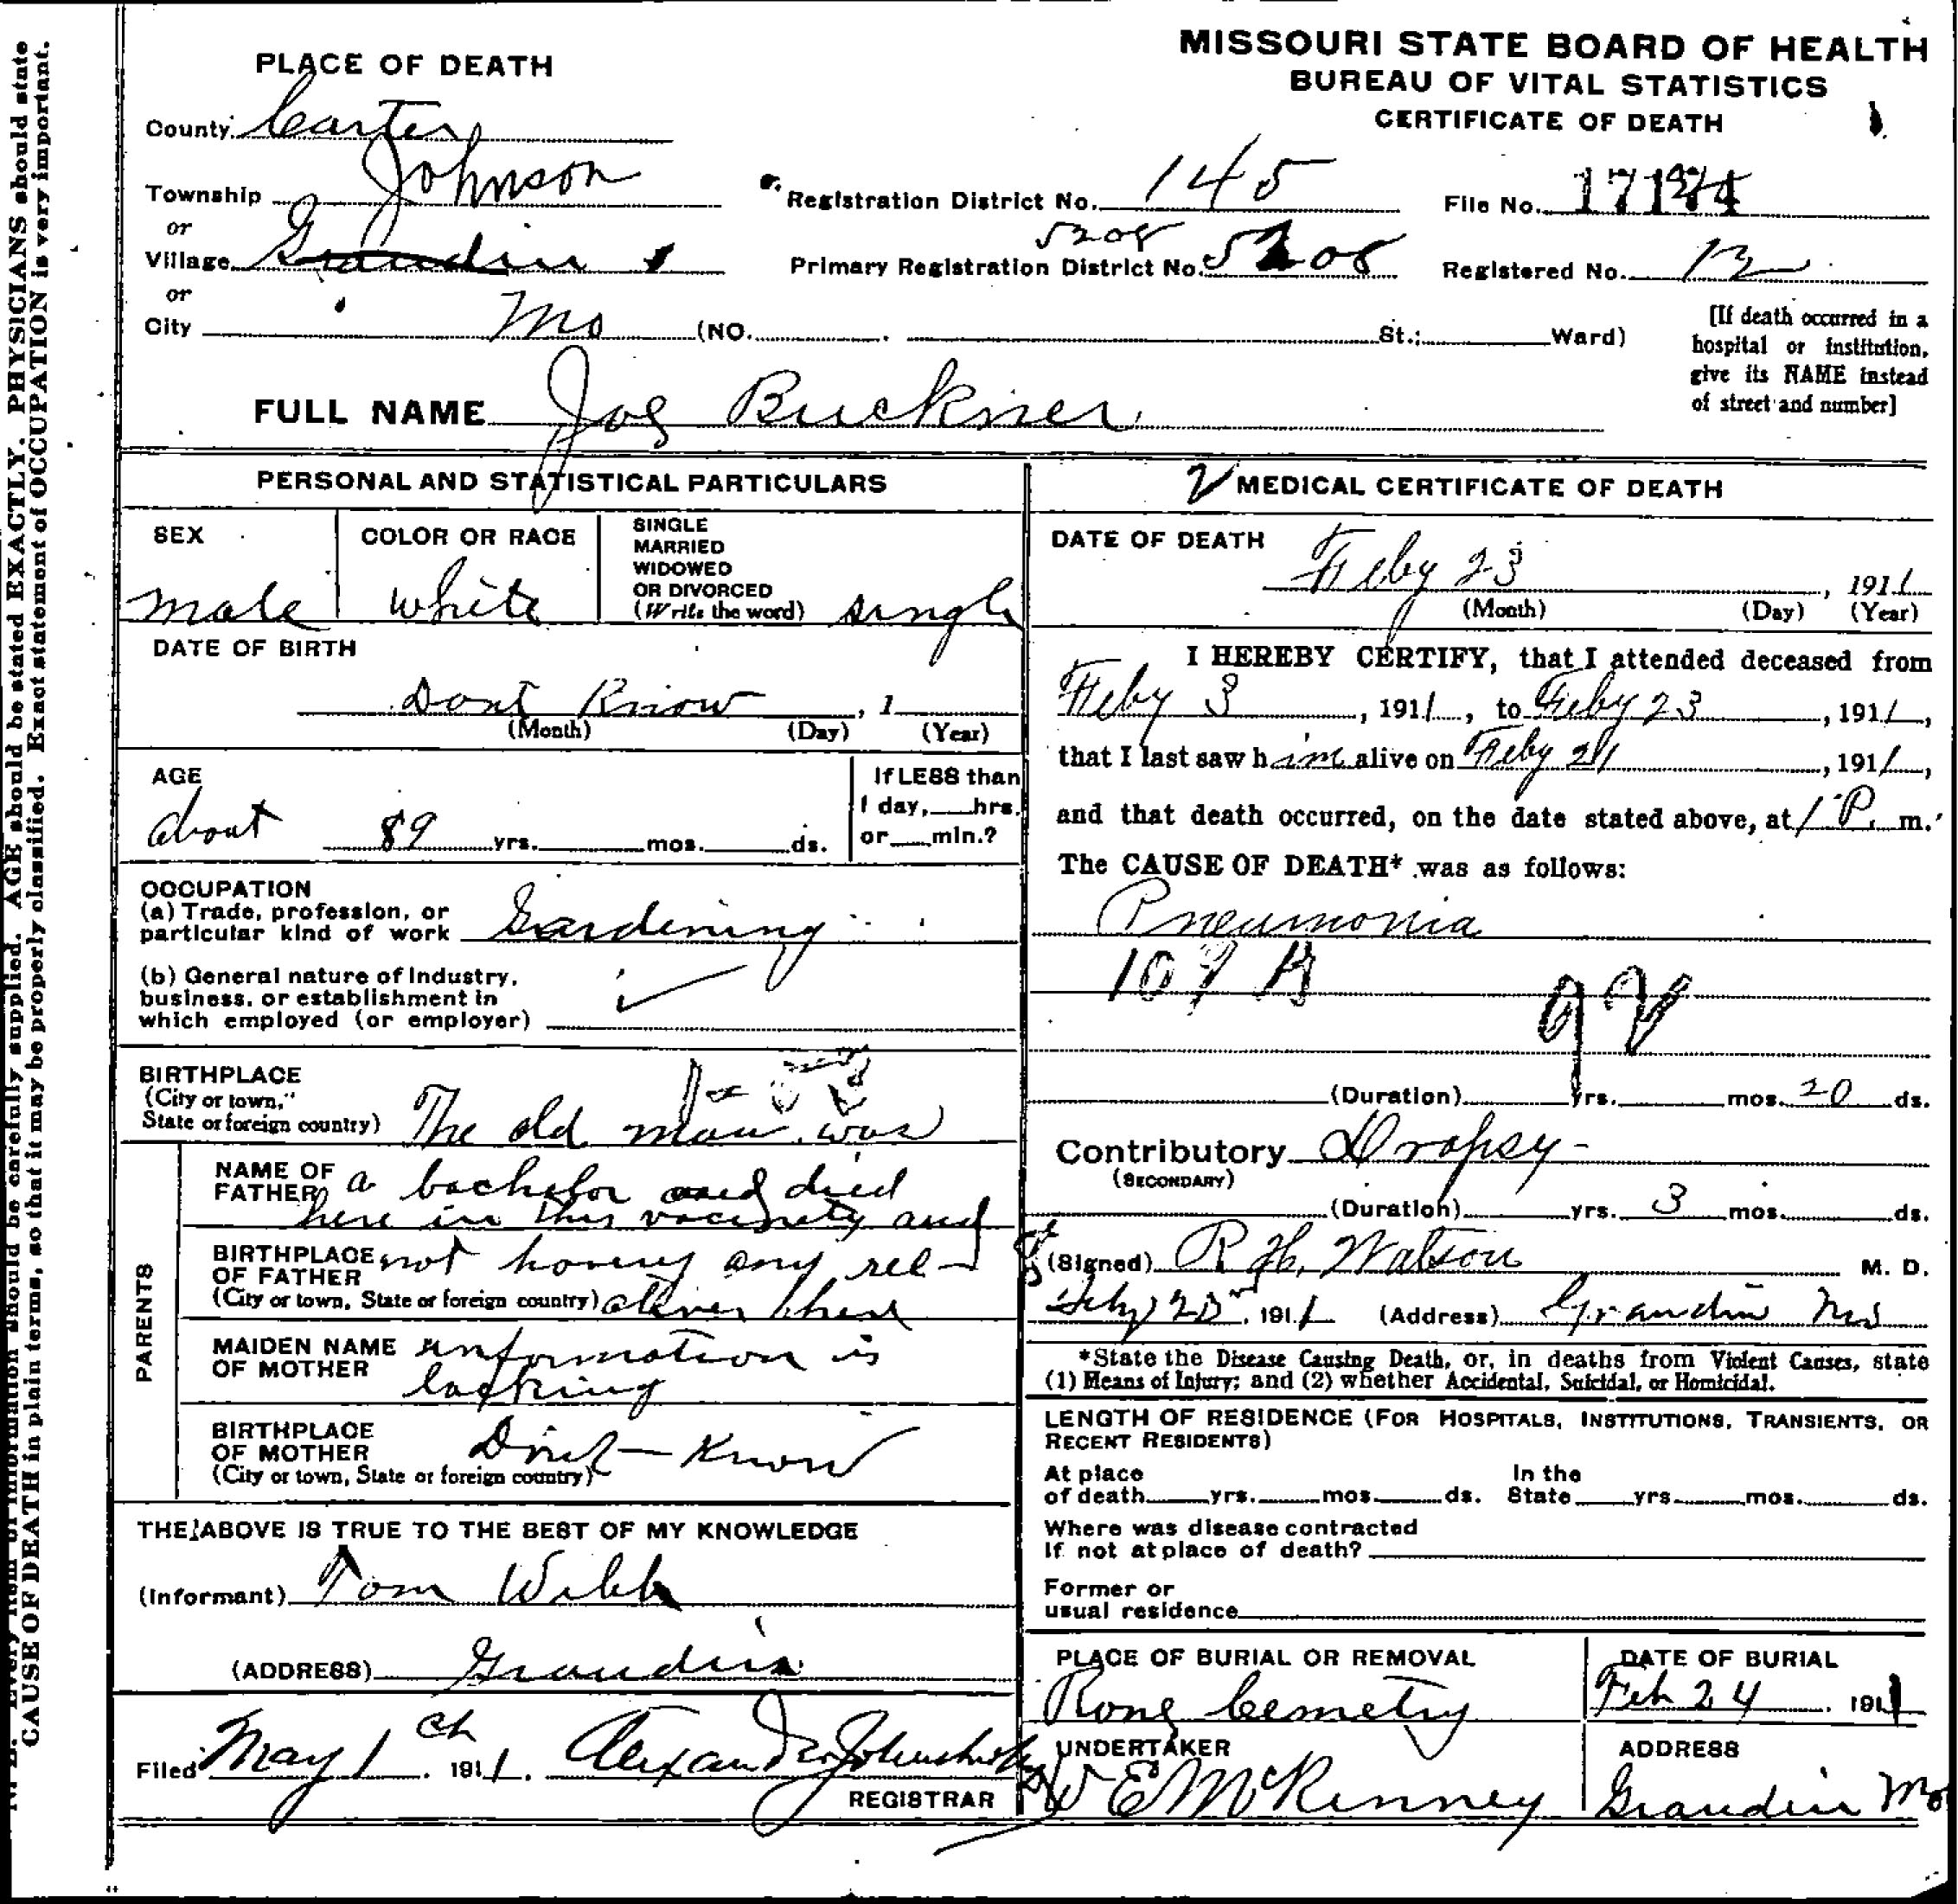 MISSOURI STATE BOARD OF HEALTH
BUREAU OF VITAL STATISTICS
CERTIFICATE OF DEATH
PLACE OF DEATH
County Carter
Township Johnson
or
Village Grandin
or
City Mo (NO. St.; Ward)
Registration District No. 145
File No.
5208
Primary Registration District No. 5208
Registered No. 12
[If death occurred in a
hospital or institution,
give its NAME instead
of street and number]
FULL NAME Joe Buckner
PERSONAL AND STATISTICAL PARTICULARS
SEX
male
COLOR OR RACE
white
SINGLE
MARRIED
WIDOWED
OR DIVORCED
(Write the word) single
DATE OF BIRTH
Dont Know, 1
(Month) (Day) (Year)
AGE
about 89 yrs. mos. ds.
If LESS than
1 day, hrs.
or min.?
OCCUPATION
(a) Trade, profession, or
particular kind of work Gardening
(b) General nature of Industry,
business, or establishment in
which employed (or employer)
BIRTHPLACE
(City or town,
State or foreign country) The old man was
PARENTS
NAME OF
FATHER a bachelor and died
here in this vacinety and
BIRTHPLACE
OF FATHER not having any rel-
(City or town, State or foreign country)
MAIDEN NAME
OF MOTHER information is
lacking
BIRTHPLACE
OF MOTHER Dont - Know
(City or town, State or foreign country)
THE ABOVE IS TRUE TO THE BEST OF MY KNOWLEDGE
(Informant) Tom Webb
(ADDRESS) Grandin
Filed May 1, 1911. Alexander
REGISTRAR
MEDICAL CERTIFICATE OF DEATH
DATE OF DEATH
Feby 23, 1911
(Month) (Day) (Year)
I HEREBY CERTIFY, that I attended deceased from
Feby 3, 1911, to Feby 23, 1911,
that I last saw him alive on Feby 21, 1911,
and that death occurred, on the date stated above, at 1 P. m.
The CAUSE OF DEATH* was as follows:
Pneumonia
(Duration) yrs. mos. 20 ds.
Contributory Dropsy -
(SECONDARY)
(Duration) yrs. 3 mos. ds.
(Signed) R. H. Watson M. D.
Feby 23rd, 1911 (Address) Grandin Mo
*State the Disease Causing Death, or, in deaths from Violent Causes, state
(1) Means of Injury; and (2) whether Accidental, Suicidal, or Homicidal.
LENGTH OF RESIDENCE (FOR HOSPITALS, INSTITUTIONS, TRANSIENTS, OR
RECENT RESIDENTS)
At place
of death yrs. mos. ds.
In the
State yrs. mos. ds.
Where was disease contracted
if not at place of death?
Former or
usual residence
PLACE OF BURIAL OR REMOVAL
Cemetry
DATE OF BURIAL
Feb 24, 1911
UNDERTAKER
W E McKinney
ADDRESS
Grandin Mo
should be carefully supplied. AGE should be stated EXACTLY. PHYSICIANS should state
CAUSE OF DEATH in plain terms, so that it may be properly classified. Exact statement of OCCUPATION is very important.